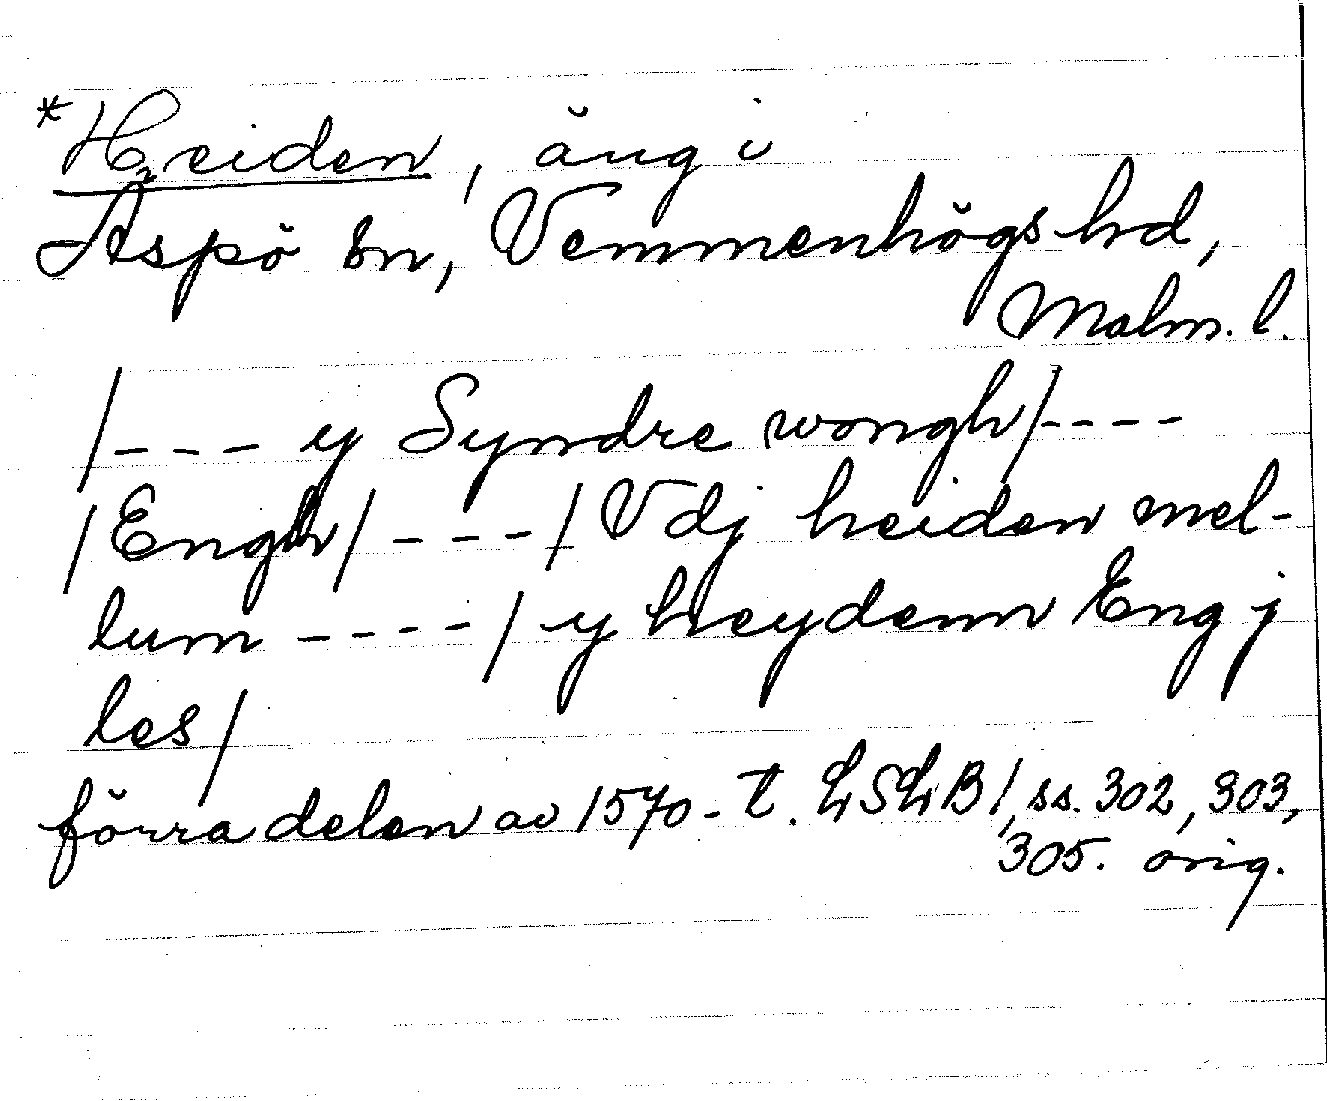 *Heiden, äng i
Äspö sn, Vemmenhögs hd,
Malm. l.
/--- y Syndre wongh/----
/Engh/ ---/ Vdj heiden mel-
lum ----/ y heydenn Eng j
les/
förra delen av 1570-t. LSLB 1, ss. 302, 303,
305. orig.